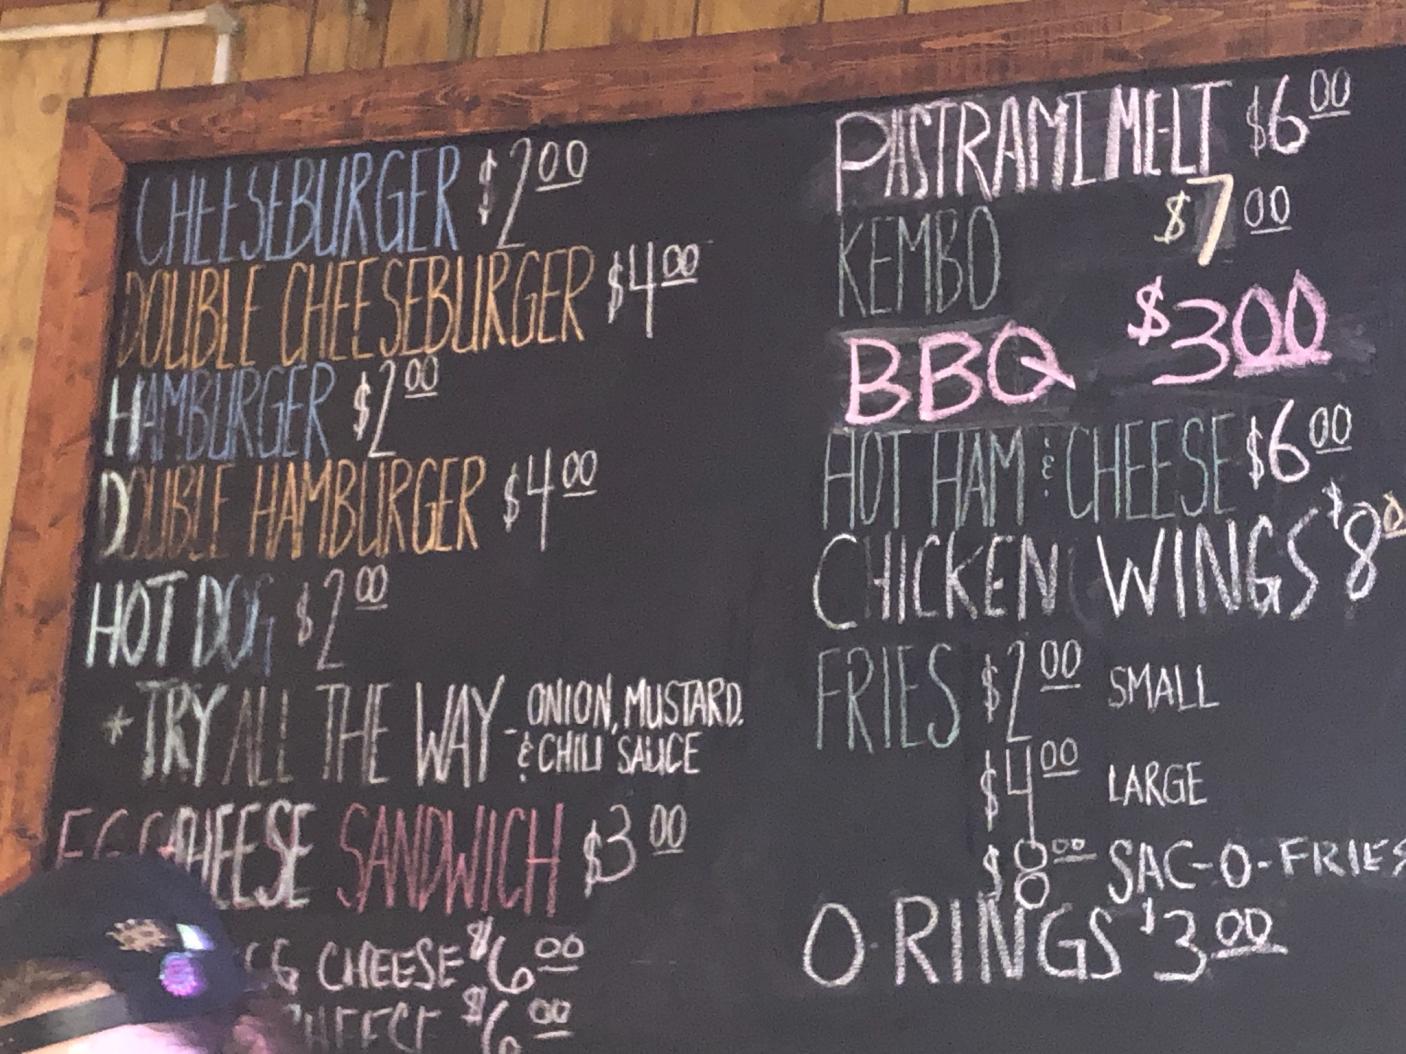 CHEESEBURGER $2.00
DOUBLE CHEESEBURGER $4.00
HAMBURGER $2.00
DOUBLE HAMBURGER $4.00
HOT DOG $2.00
*TRY ALL THE WAY - ONION, MUSTARD.
& CHILI SAUCE
EGG CHEESE SANDWICH $3.00
CHEESE $6.00
$6.00
PASTRAMI MELT $6.00
KEMBO $7.00
BBQ $3.00
HOT HAM & CHEESE $6.00
CHICKEN WINGS $8.0
FRIES $2.00 SMALL
$4.00 LARGE
$8.00 SAC-O-FRIES
O-RINGS $3.00